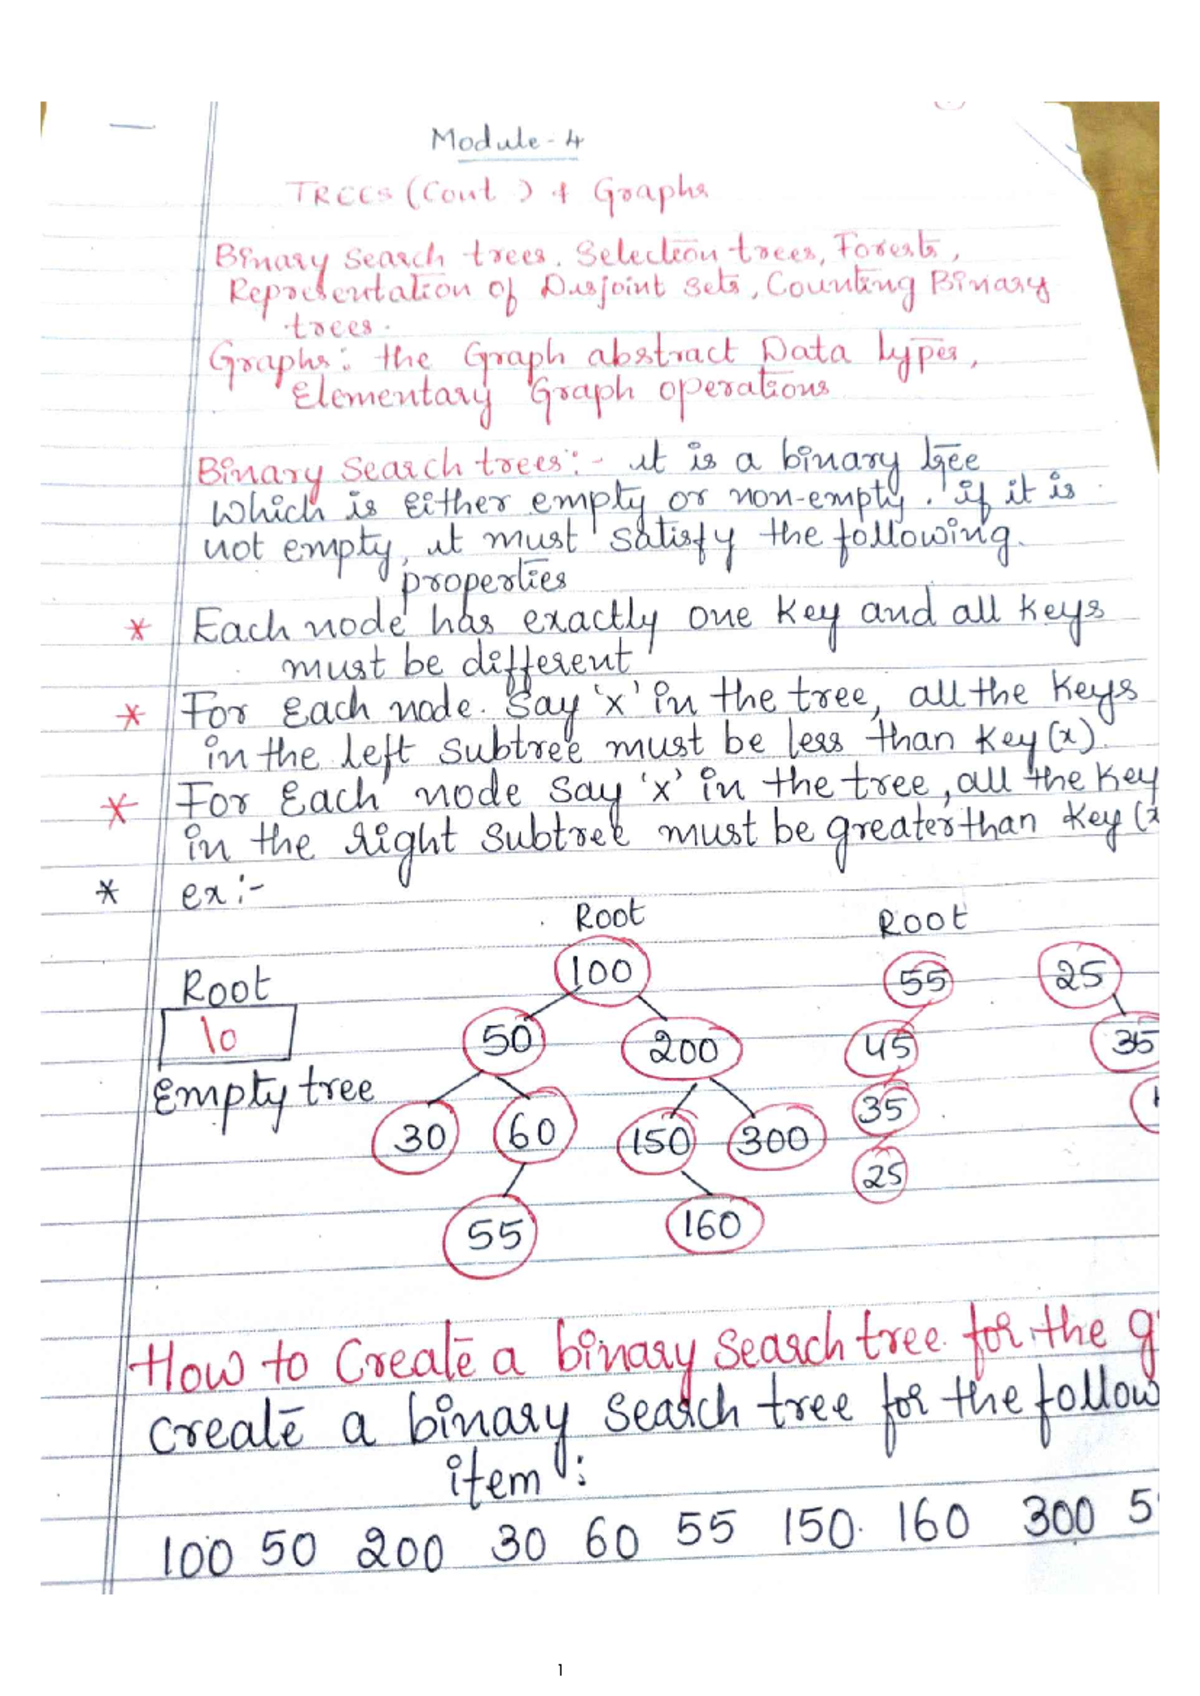 Module-4
TREES (Cont ) & Graphs
Binary Search trees, Selection trees, Forests,
Representation of Disjoint Sets, Counting Binary
trees.
Graphs: the Graph abstract Data types,
Elementary Graph operations
Binary Search trees:- it is a binary tree
which is either empty or non-empty. if it is
not empty, it must satisfy the following
properties
* Each node has exactly one key and all keys
must be different
* For each node. Say 'x' in the tree, all the keys
in the left subtree must be less than key(x).
* For Each node say 'x' in the tree, all the key
in the right subtree must be greater than key(x
* ex:-
Root Root
100 55 25
Root
10
50 200 45 35
Empty tree
30 60 150 300 35
25
55 160
How to Create a binary search tree for the g
create a binary search tree for the follow
item:
100 50 200 30 60 55 150 160 300 5
1